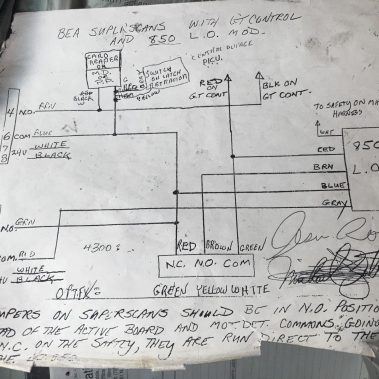 BEA SUPERSCANS WITH GT CONTROL
AND 850 L.O. MOD.
CARD
READER
OR
BLACK
RED
YELLOW
SWITCH
ON LATCH
RETRACTION
CENTRAL
PICU.
RED
ON
GT CONT.
BLK ON
GT CONT.
TO SAFETY ON MA
HARNESS
4 N.O. RED
6 COM BLUE
7 24V WHITE
8 BLACK
WHT
RED
BRN
BLUE
GRAY
850
L.O.
N.O. GRN
COM RED
WHITE
24V BLACK
4300
RED BROWN GREEN
N.C. N.O. COM
GREEN YELLOW WHITE
MPERS ON SUPERSCANS SHOULD BE IN N.O. POSITIO
AD OF THE ACTIVE BOARD AND MOT DET. COMMONS GOING
N.C. ON THE SAFTY, THEY ARE RUN DIRECT TO THE